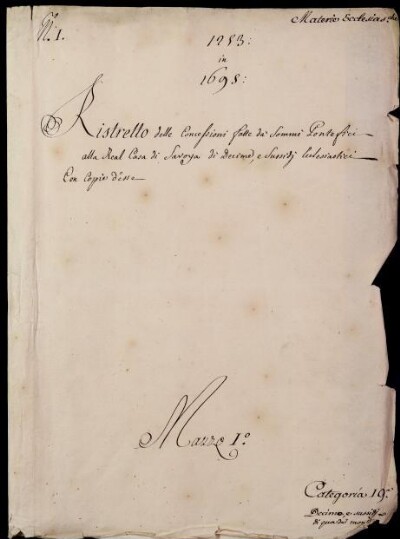 N. 1.
Materie Ecclesias.che
1253:
in
1695:
Ristretto delle Concessioni fatte da Sommi Pontefici
alla Real Casa di Savoya di Decime, e Sussidj Ecclesiastici
Con Copie d'esse
Mazzo I.º
Categoria 19.ª
Decime, e sussidj
di qua da' monti